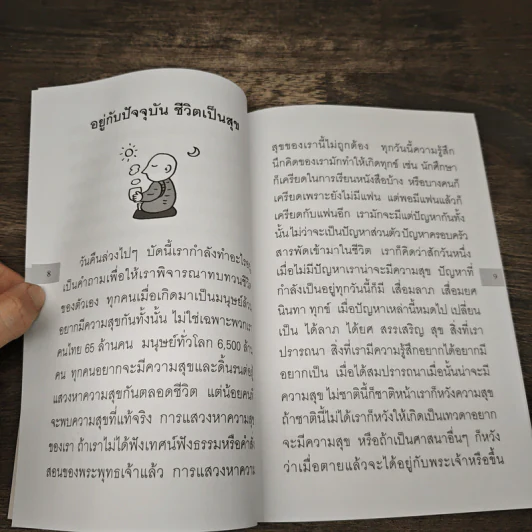 อยู่กับปัจจุบัน ชีวิตเป็นสุข
วันคืนล่วงไปๆ บัดนี้เรากำลังทำอะไร
เป็นคำถามเพื่อให้เราพิจารณาทบทวนชีวิต
ของตัวเอง ทุกคนเมื่อเกิดมาเป็นมนุษย์ล้วน
อยากมีความสุขกันทั้งนั้น ไม่ใช่เฉพาะพวกเรา
คนไทย 65 ล้านคน มนุษย์ทั่วโลก 6,500 ล้าน
คน ทุกคนอยากจะมีความสุขและดิ้นรนต่อสู้
แสวงหาความสุขกันตลอดชีวิต แต่น้อยคนที่
จะพบความสุขที่แท้จริง การแสวงหาความสุข
ของเรา ถ้าเราไม่ได้ฟังเทศน์ฟังธรรมหรือคำสั่ง
สอนของพระพุทธเจ้าแล้ว การแสวงหาความ
8
สุขของเรานี้ไม่ถูกต้อง ทุกวันนี้ความรู้สึก
นึกคิดของเรามักทำให้เกิดทุกข์ เช่น นักศึกษา
ก็เครียดในการเรียนหนังสือบ้าง หรือบางคนก็
เครียดเพราะยังไม่มีแฟน แต่พอมีแฟนแล้วก็
เครียดกับแฟนอีก เรามักจะมีแต่ปัญหากันทั้ง
นั้นไม่ว่าจะเป็นปัญหาส่วนตัวปัญหาครอบครัว
สารพัดเข้ามาในชีวิต เราก็คิดว่าสักวันหนึ่ง
เมื่อไม่มีปัญหาเราน่าจะมีความสุข ปัญหาที่
กำลังเป็นอยู่ทุกวันนี้ก็มี เสื่อมลาภ เสื่อมยศ
นินทา ทุกข์ เมื่อปัญหาเหล่านี้หมดไป เปลี่ยน
เป็น ได้ลาภ ได้ยศ สรรเสริญ สุข สิ่งที่เรา
ปรารถนา สิ่งที่เรามีความรู้สึกอยากได้อยากมี
อยากเป็น เมื่อได้สมปรารถนาเมื่อนั้นน่าจะมี
ความสุข ไม่ชาตินี้ก็ชาติหน้าเราก็หวังความสุข
ถ้าชาตินี้ไม่ได้เราก็หวังให้เกิดเป็นเทวดาอยาก
จะมีความสุข หรือถ้าเป็นศาสนาอื่นๆ ก็หวัง
ว่าเมื่อตายแล้วจะได้อยู่กับพระเจ้าหรือขึ้น
9